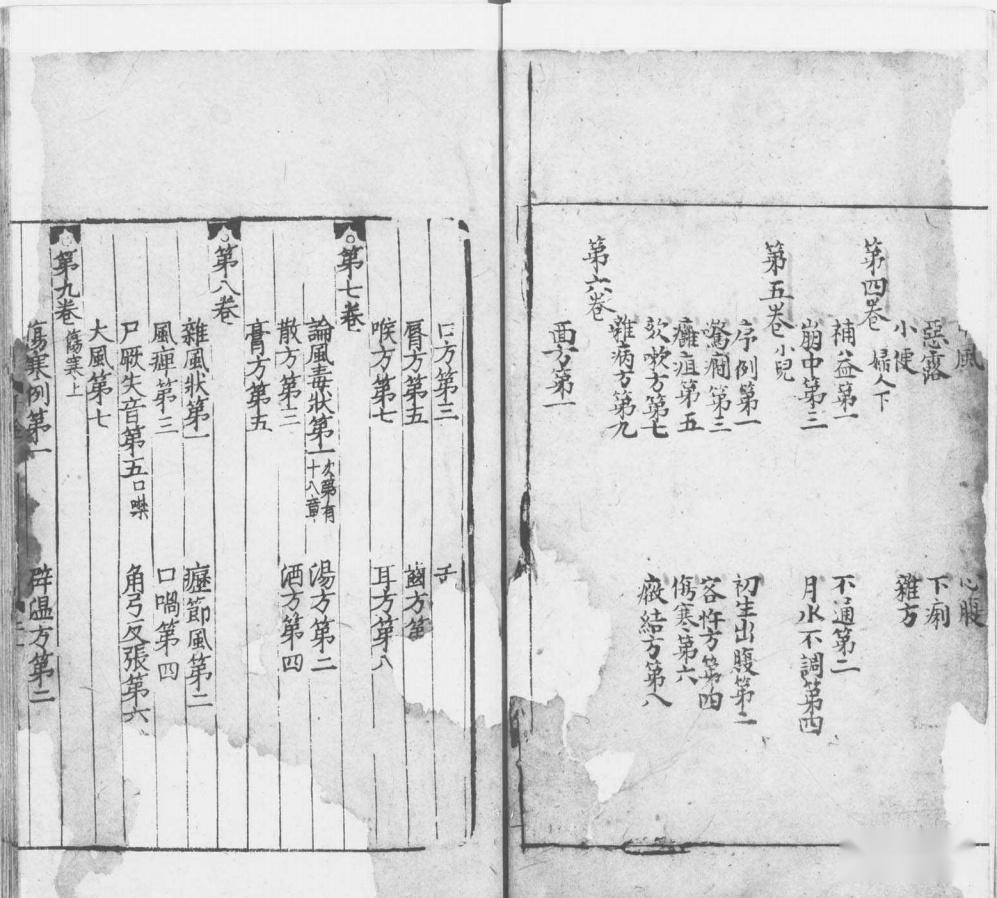 風　心腹
惡露　下痢
小便　雜方
第四卷婦人下
補益第一　不通第二
崩中第三　月水不調第四
第五卷小兒
序例第一　初生出腹第二
驚癇第三　客忤方第四
癰疽第五　傷寒第六
欬嗽方第七　癥結方第八
雜病方第九
第六卷
面方第一
口方第三　舌
脣方第五　齒方第
喉方第七　耳方第八
第七卷
論風毒狀第一次第有十八章　湯方第二
散方第三　酒方第四
膏方第五
第八卷
雜風狀第一　癧節風第二
風痺第三　口喎第四
尸厥失音第五口噤　角弓反張第六
大風第七
第九卷傷寒上
傷寒例第一　辟溫方第二